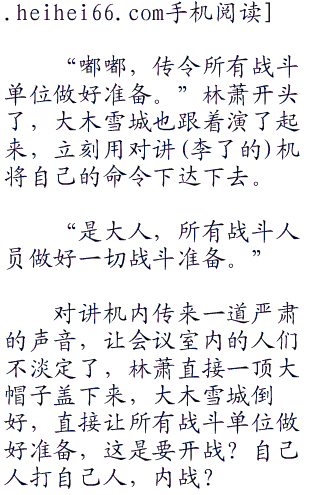 .heihei66.com手机阅读]
“嘟嘟，传令所有战斗
单位做好准备。”林萧开头
了，大木雪城也跟着演了起
来，立刻用对讲(李了的)机
将自己的命令下达下去。
“是大人，所有战斗人
员做好一切战斗准备。”
对讲机内传来一道严肃
的声音，让会议室内的人们
不淡定了，林萧直接一顶大
帽子盖下来，大木雪城倒
好，直接让所有战斗单位做
好准备，这是要开战？自己
人打自己人，内战？